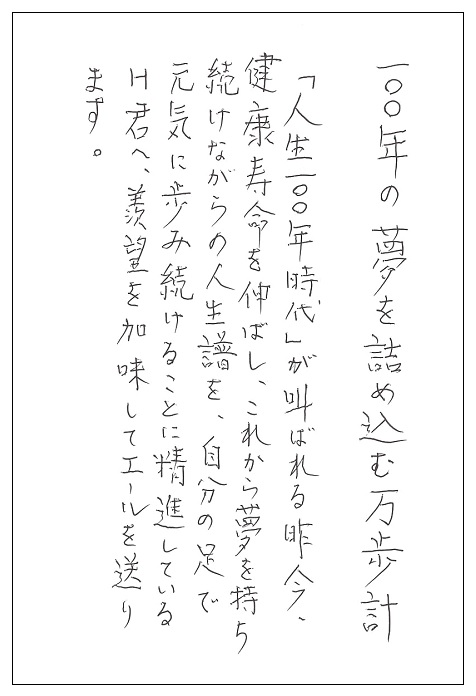 一〇〇年の夢を詰め込む万歩計
「人生一〇〇年時代」が叫ばれる昨今、
健康寿命を伸ばし、これから夢を持ち
続けながらの人生譜を、自分の足で
元気に歩み続けることに精進している
H君へ、羨望を加味してエールを送り
ます。